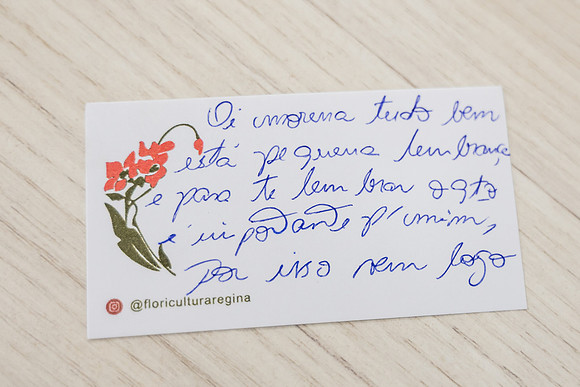 Oi morena tudo bem
está pequena lembrança
e para te lembrar o qto
é importante p/ mim,
Por isso vem logo
@floriculturaregina